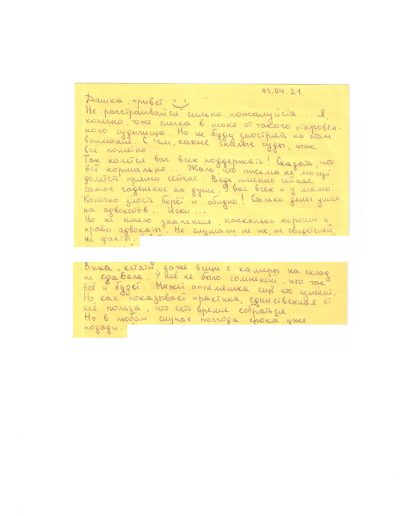 01.04.21
Дашка, привет
Не расстраивайся сильно пожалуйста... Я,
конечно, тоже слегка в шоке от такого откровен-
ного судилища. Но не буду заострять на этом
внимание. С тем, какие гнилые суды, итак
всё понятно.
Так хочется вас всех поддержать! Сказать, что
всё нормально... Жаль, что письма не могут
долететь прямо сейчас. Ведь именно сейчас
самое гаденькое на душе. У вас всех и у мамы...
Конечно злость берёт и обидно! Столько денег ушло
на адвокатов... Иски...
Но не имело значения, насколько хороши и
правы адвокаты. Не слушали не их не свидетелей,
не факты.
Вика, кстати, даже вещи с камеры на склад
не сдавала. У неё не было сомнений, что так
всё и будет. Может аппеляшка ещё что изменит.
Но как показывает практика, единственная от
неё польза, что есть время собраться.
Но в любом случае полгода срока уже
позади.